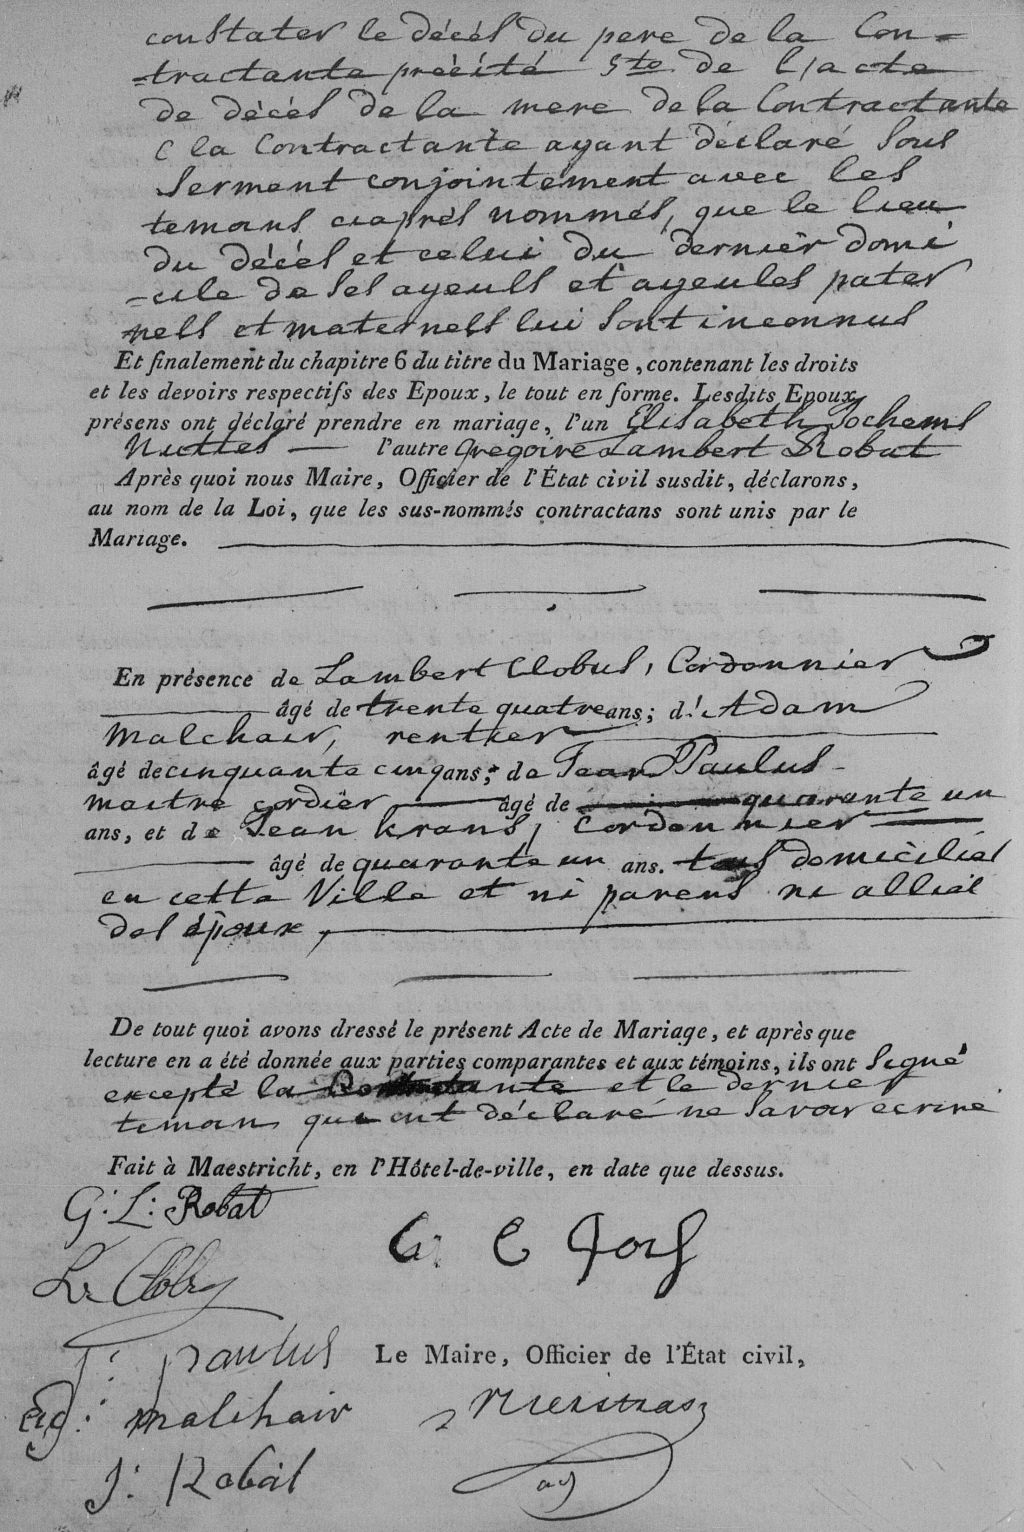 constater le décés du pere de la Con=
=tractante précité 5to de l'acte
de décés de la mere de la Contractante
la Contractante ayant déclaré sous
serment conjointement avec les
temoins ciaprés nommés, que le lieu
du décés et celui du dernier domi
=cile de ses ayeuls et ayeules pater
nels et maternels lui sont inconnus
Et finalement du chapitre 6 du titre du Mariage, contenant les droits
et les devoirs respectifs des Epoux, le tout en forme. Lesdits Epoux
présens ont déclaré prendre en mariage, l'un Elisabeth Jochems
Nuttes — l'autre Gregoire Lambert Robat
Après quoi nous Maire, Officier de l'État civil susdit, déclarons,
au nom de la Loi, que les sus-nommés contractans sont unis par le
Mariage.
En présence de Lambert Clobus, Cordonnier
âgé de trente quatre ans; d' Adam
Malchair, rentier
âgé de cinquante cinq ans; de Jean Paulus
maitre cordier âgé de quarante un
ans, et de Jean Krans, Cordonnier
âgé de quarante un ans. tous domiciliés
en cette Ville et ni parens ni alliés
des époux,
De tout quoi avons dressé le présent Acte de Mariage, et après que
lecture en a été donnée aux parties comparantes et aux témoins, ils ont signé
excepté la Contractante et le dernier
temoin qui ont déclaré ne savoir ecrire
Fait à Maestricht, en l'Hôtel-de-ville, en date que dessus.
G: L: Robat
J: paulus
Le Maire, Officier de l'État civil,
ad: malchair
J: Robat